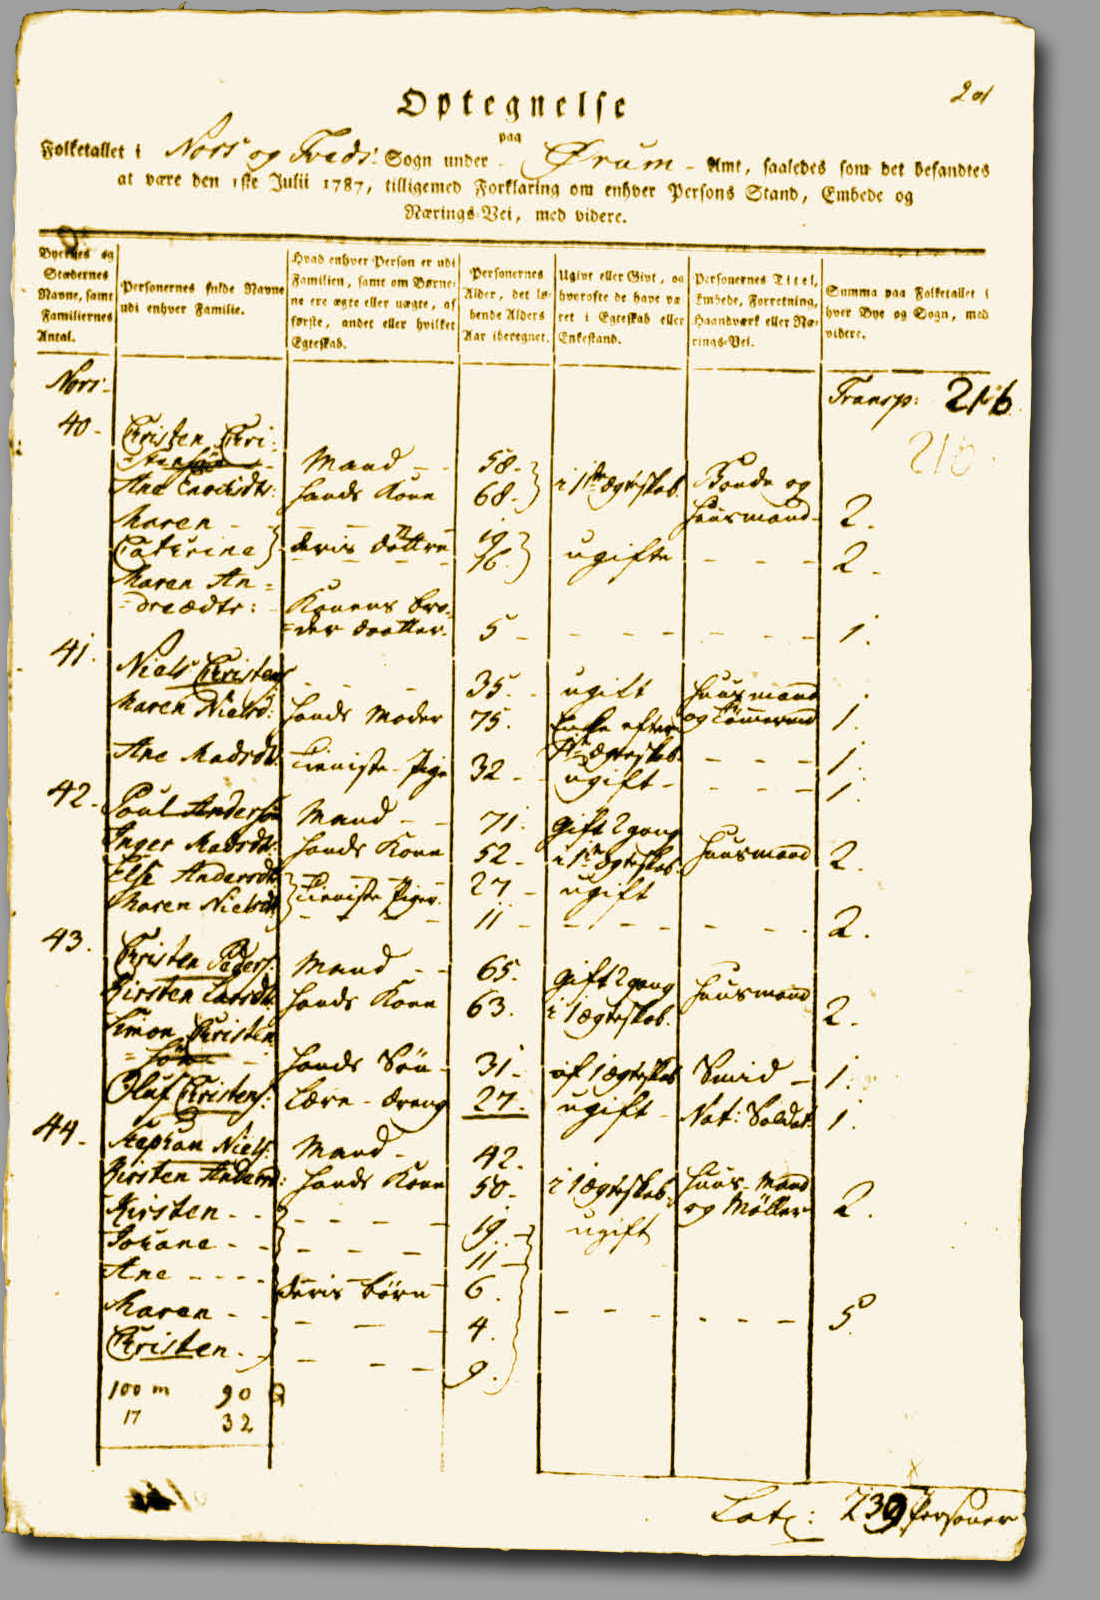 Optegnelse
paa
Folketallet i Nors og Tveds: Sogn under Ørum Amt, saaledes som det befandtes
at være den 1ste Julii 1787, tilligemed Forklaring om enhver Persons Stand, Embede og
Nærings-Vei, med videre.
Byernes og
Stædernes
Navne, samt
Familiernes
Antal.
Personernes fulde Navne
udi enhver Familie.
Hvad enhver Person er udi
Familien, samt om Børne-
ne ere ægte eller uægte, af
første, andet eller hvilket
Egteskab.
Personernes
Alder, det lø-
bende Alders
Aar iberegnet.
Ugivt eller Givt, og
hvorofte de have væ-
ret i Egteskab eller
Enkestand.
Personernes Titel,
Embede, Forretning,
Haandværk eller Næ-
rings-Vei.
Summa paa Folketallet i
hver Bye og Sogn, med
videre.
Nors
Transp: 216
216
40
Christen Chri-
stensøn Mand 58
Ane Enochsdtr: hands Kone 68 i 1ste ægteskab Bonde og
huusmand 2.
Maren 19
Catrine deris døttre 16 ugifte 2
Maren An-
dreædtr: Konens bro-
der daatter 5 1.
41
Niels Christens 35 ugift huusmand
og Tömermd 1.
Maren Nielsd: hands Moder 75 Enke efter
1te ægteskab 1.
Ane Madsdt: Tieniste-Pige 32 ugift 1.
42
Poul Andersøn Mand 71 Gift 2 gang
Inger Madsdt: hands Kone 52 i 1te ægteskab huusmand 2.
Else Andersdt 27 ugift
Maren Nielsdt Tieniste Piger 11 2.
43
Christen Peders: Mand 65 Gift 2 gang
Kirsten Larsdt: hands Kone 63 i 1 ægteskab huusmand 2
Simon Christen-
søn hands Sön 31 af 1 ægteskab Smid 1.
Oluf Christens: Lære-dreng 27 ugift Nat: Soldat 1.
44
Stephan Niels: Mand 42
Kirsten Andersd: hands Kone 50 i 1 ægteskab huus-Mand
og Møller 2.
Kirsten 19 ugift
Johane 11
Ane deris börn 6
Maren 4 5
Christen 9
100 m 90 Q
17 32
Lat: 239 Personer